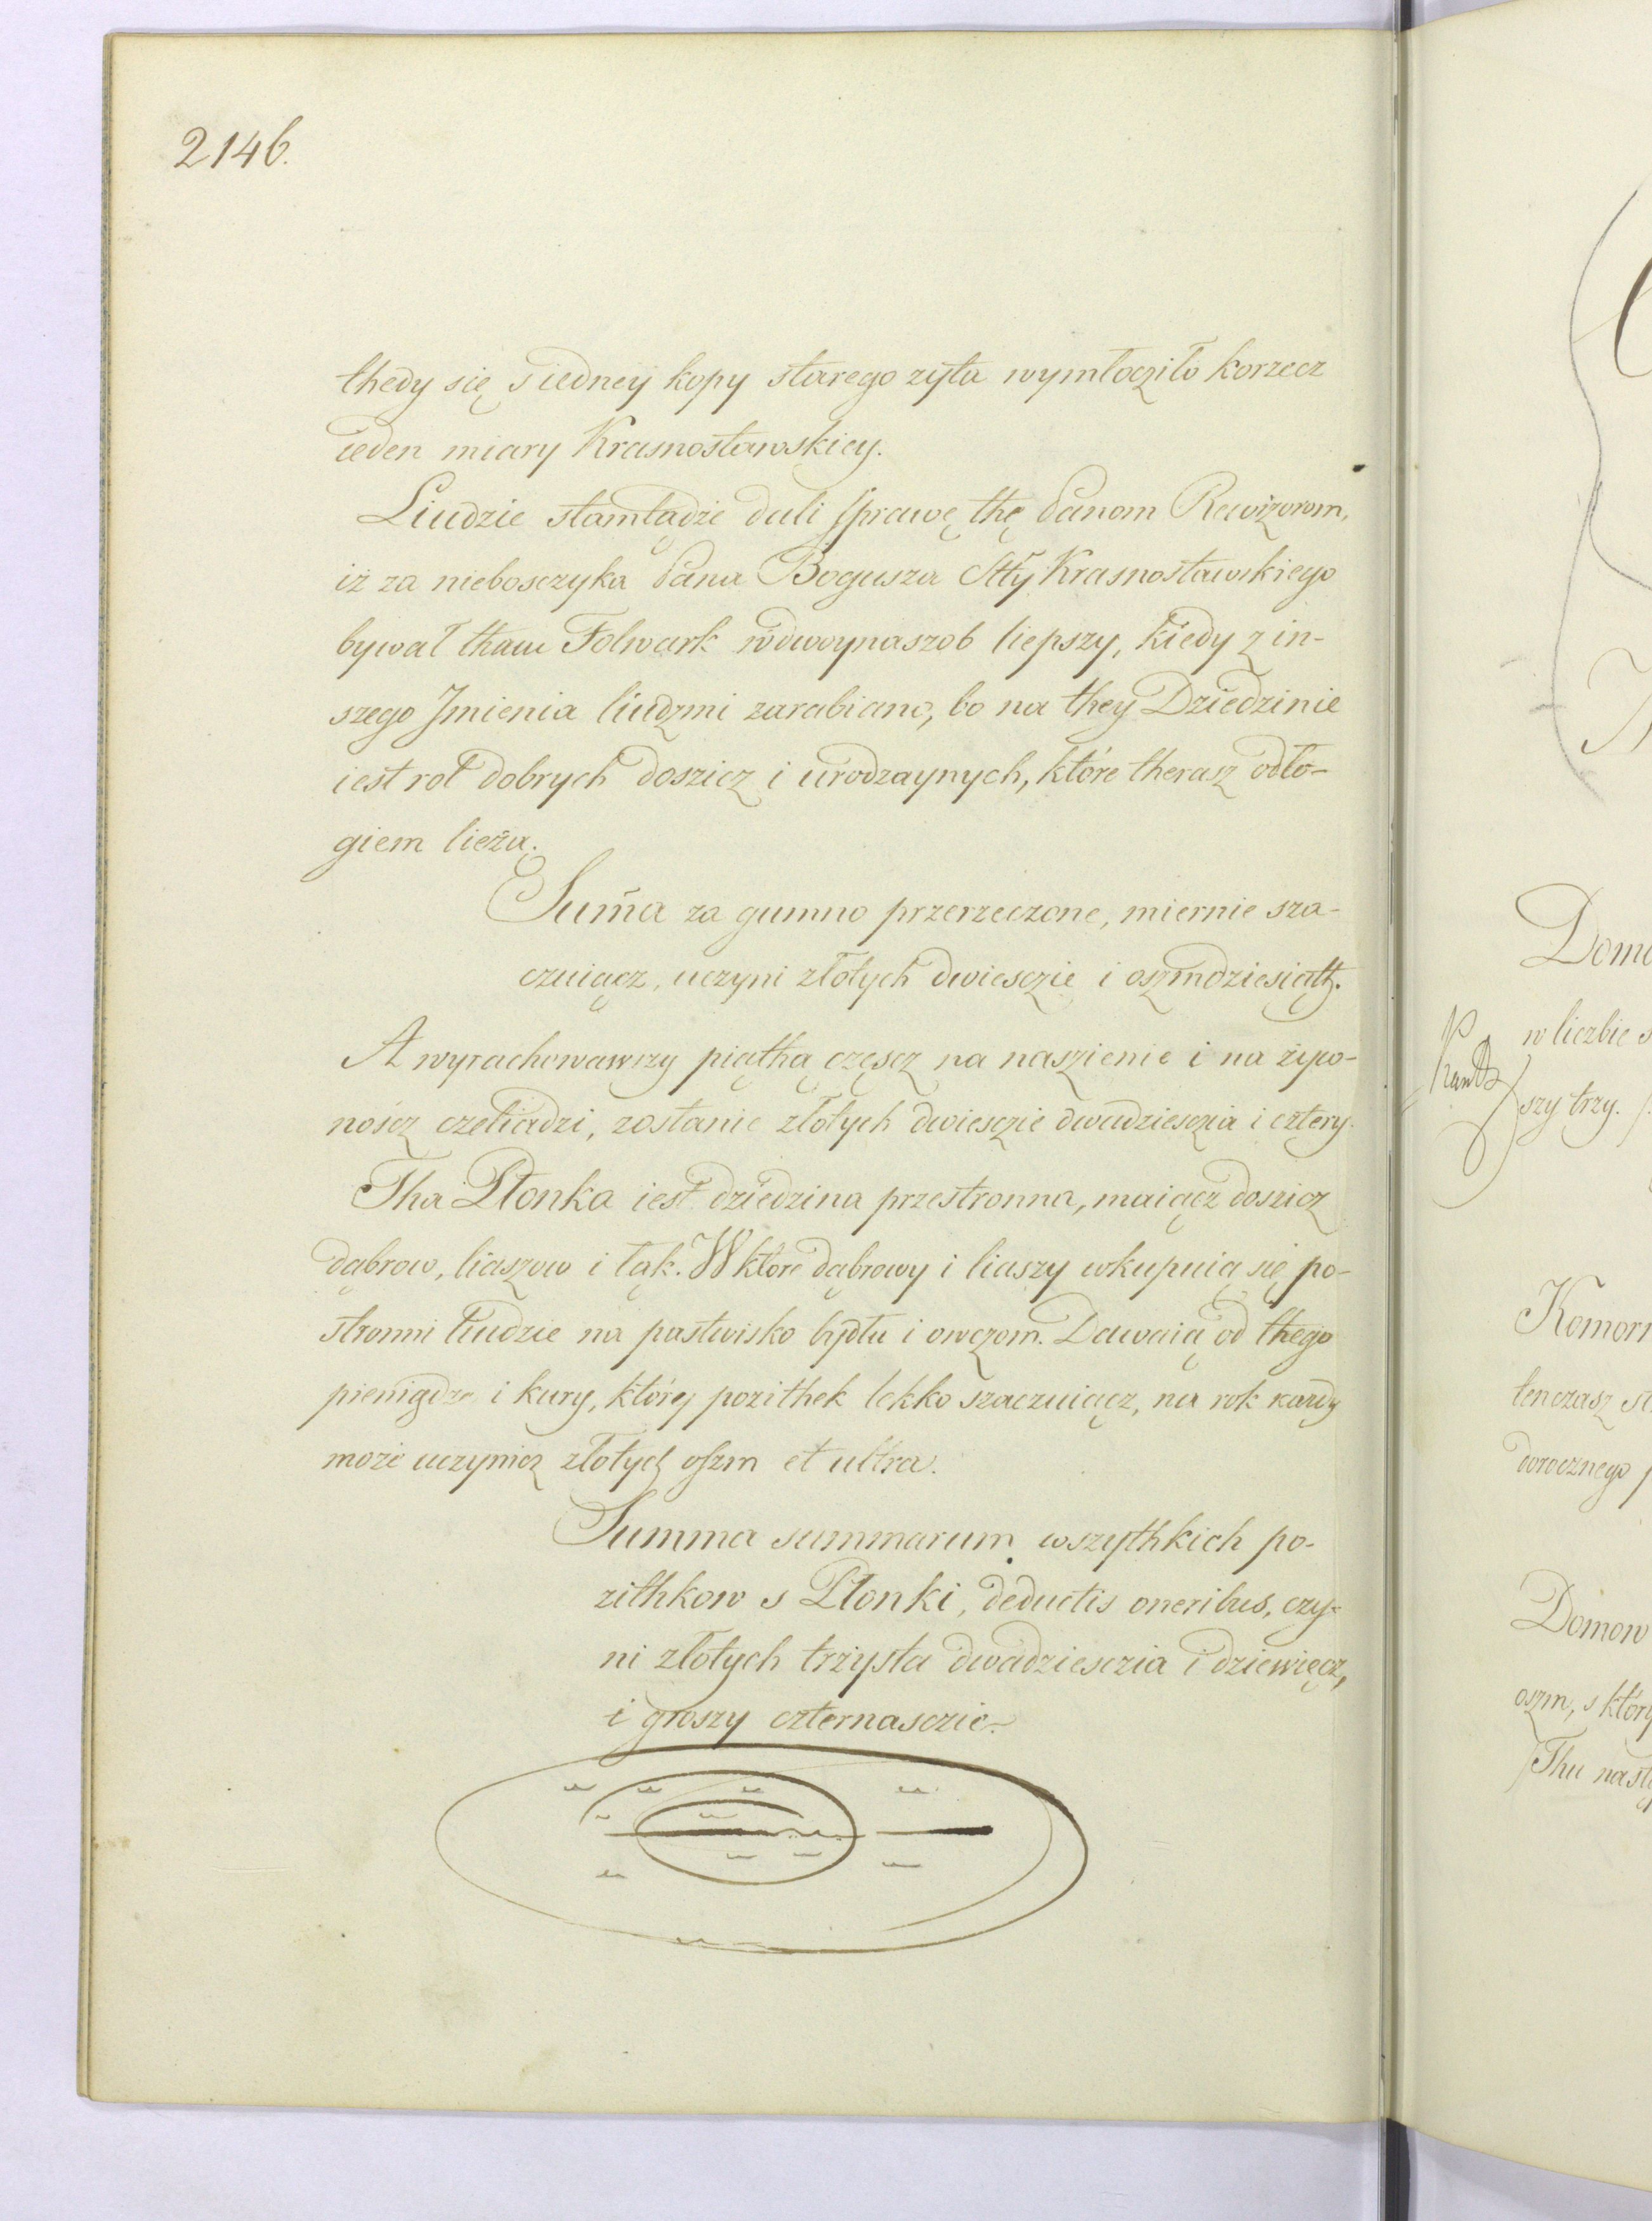 2146.
thedy się s iedney kopy starego zyta wymłocziło korzecz
ieden miary Krasnostawskiey.
Liudzie stamtądże dali sprawę thę Panom Rewizorom,
iż za niebosczyka Pana Bogusza Stty Krasnostawskiego
bywał tham Folwark wdwoynaszob liepszy, kiedy z in-
szego Jmienia liudzmi zarabiano, bo na they Dziedzinie
iest rol dobrych doszicz i urodzaynych, które therasz odło-
giem lieżą.
Sum̃a za gumno przerzeczone, miernie sza-
czuiącz, uczyni złotych dwiesczie i oszmdziesiąth.
A wyrachowawszy piąthą częscz na naszienie i na żywo-
nościz czeliadzi, zostanie złotych dwiesczie dwadziesczia i cztery.
Tha Płonka iest dziedzina przestronna, maiącz doszicz
dąbrow, liaszow i łąk. W które dąbrowy i liaszy wkupuią się po-
stronni liudzie na pastwisko bydłu i owczom. Dawaią od thego
pieniądze i kury, któréj pozithek lekko szaczuiącz, na rok kazdy
może uczynicz złotych oszm et ultra.
Summa summarum wszythkich po-
zithkow s Płonki, deductis oneribus, czy-
ni złotych trzysta dwadziesczia i dziewięcz,
i groszy czternasczie.
Domo
w liczbie s
szy trzy.
Komorn
tenczasz
dorocznego
Domow
oszm, s który
Thu nastę